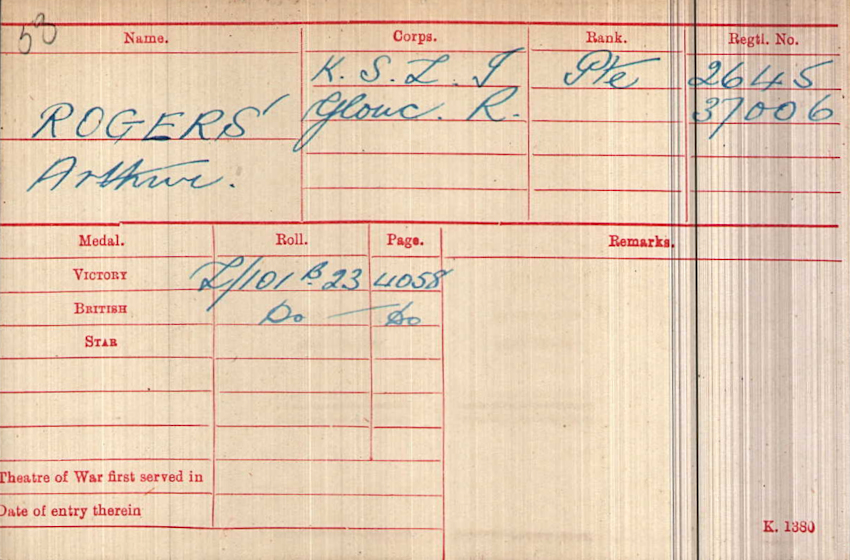 53
Name. Corps. Rank. Regtl. No.
K. S. L. I Pte 2645
ROGERS Glouc. R. 37006
Arthur.
Medal. Roll. Page. Remarks.
VICTORY L/101 B 23 4058
BRITISH Do — Do
STAR
Theatre of War first served in
Date of entry therein
K. 1380